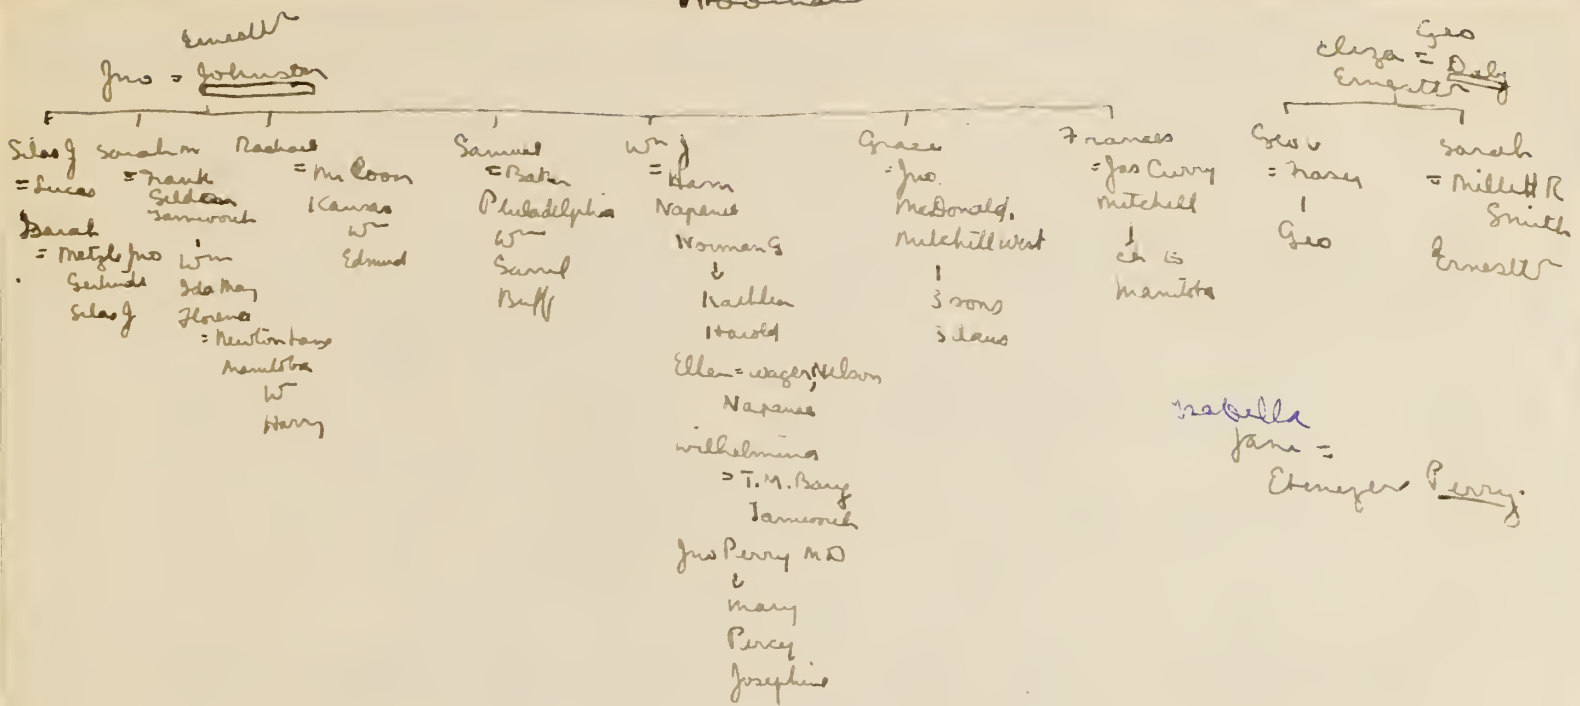 Ernesttn
Jno = Johnston
Geo
Eliza = Daly
Ernesttn
Silas J
= Lucas
Sarah
= Metzle Jno
Gertrude
Silas J
Sarah M
= Frank
Tamworth
Wm
Ida May
Florence
= Newton
Manitoba
W
Harry
Rachael
= Mr Coon
Kansas
Wm
Edmund
Samuel
= Baker
Philadelphia
Wm
Saml
Buff
Wm J
= Ham
Napanee
Norman G
Kathleen
Harold
Ellen = Wager, Nelson
Napanee
Wilhelmina
= T. M.
Tamworth
Jno Perry MD
Mary
Percy
Josephine
Grace
= Jno.
McDonald,
Mitchell West
3 sons
3 daus
Frances
= Jas Curry
Mitchell
ch in
Manitoba
Geo
= Fraser
Geo
Sarah
= Millett R
Smith
Ernesttn
Isabella
Jane =
Ebenezer Perry.